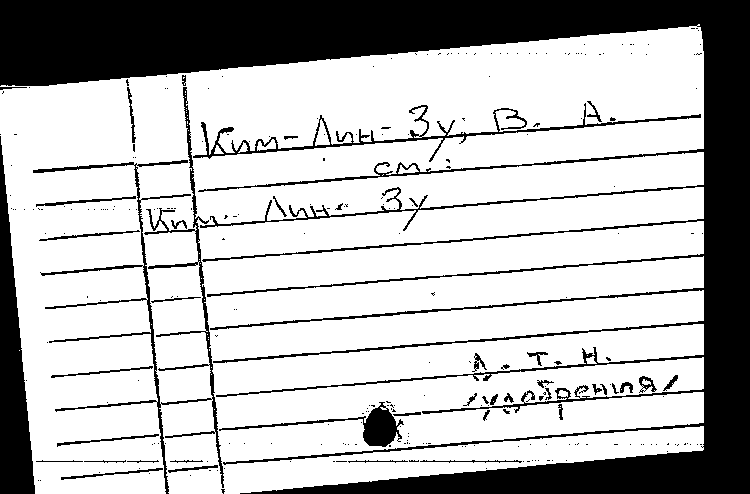 Ким-Лин-Зу, В. А.
см.:
Ким-Лин-Зу
д. т. н.
/удобрения/